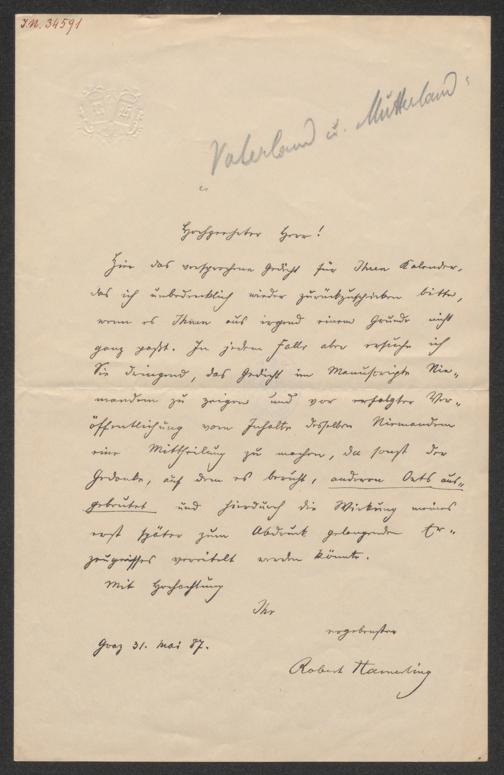 I.N. 34591
„Vaterland u. Mutterland“
Hochgeehrter Herr!
Hier das versprochene Gedicht für Ihren Kalender,
das ich unbedenklich wieder zurückzuschicken bitte,
wenn es Ihnen aus irgend einem Grunde nicht
ganz paßt. In jedem Falle aber ersuche ich
Sie dringend, das Gedicht im Manuscripte Nie-
mandem zu zeigen und vor erfolgter Ver-
öffentlichung vom Inhalte desselben Niemandem
eine Mittheilung zu machen, da sonst der
Gedanke, auf dem es beruht, anderen Orts aus-
gebeutet und hierdurch die Wirkung meines
erst später zum Abdruck gelangenden Er-
zeugnisses vereitelt werden könnte.
Mit Hochachtung
Ihr
ergebenster
Graz 31. Mai 87.
Robert Hamerling